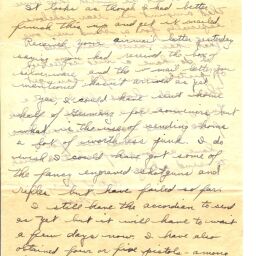 It looks as though I had better
finish this up and get it mailed.
Received your airmail letter yesterday
says you had received the box of
silverware and the mail
mentioned hasn't arrived as yet.
Yes, I could have sent home
helf of Germans for souvenirs but
what is the use of sending home
a lot of worthless junk. I do
wish I could have got some of
the fancy engraved shotguns and
rifles but have failed so far.
I still have the accordian to send
as yet but it will have to wait
a few days now. I have also
obtained four or five pistols - among